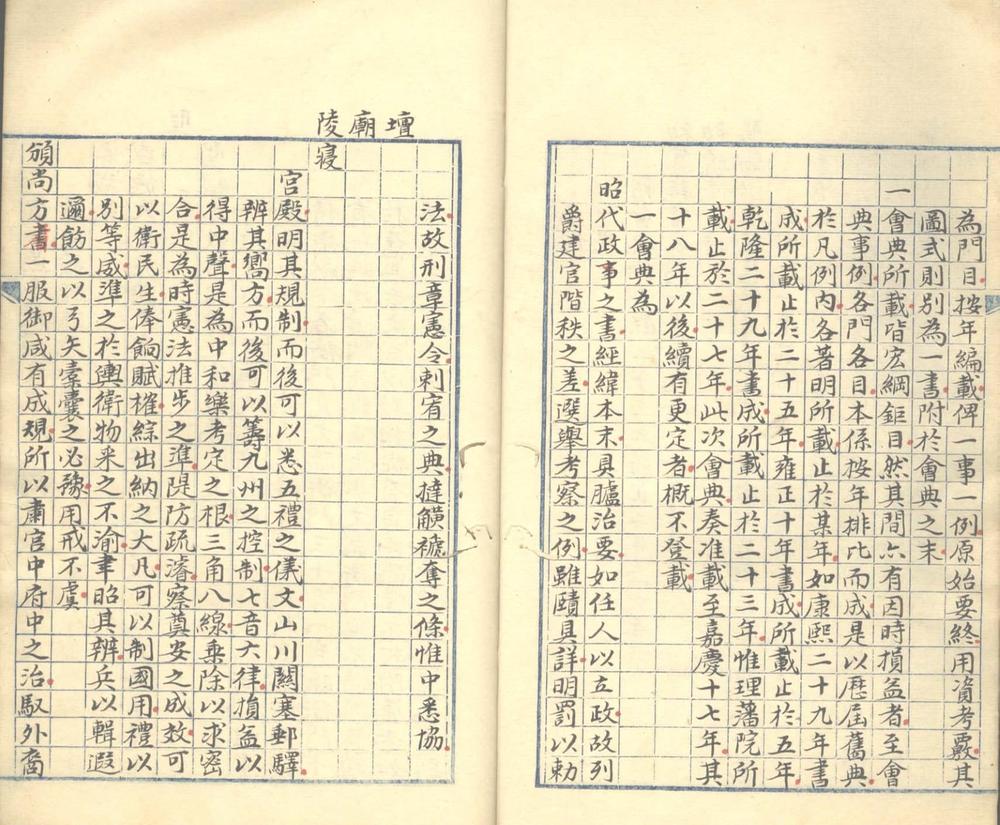 為門目按年編載俾一事一例原始要終用資考覈其
圖式則別為一書附於會典之末
一會典所載皆宏綱鉅目然其間亦有因時損益者至會
典事例各門各目本係按年排比而成是以歷屆舊典
於凡例內各著明所載止於某年如康熙二十九年書
成所載止於二十五年雍正十年書成所載止於五年
乾隆二十九年書成所載止於二十三年惟理藩院所
載止於二十七年此次會典奏准載至嘉慶十七年其
十八年以後續有更定者概不登載
一會典為
昭代政事之書經緯本末具臚治要如任人以立政故列
爵建官階秩之差選舉考察之例雖賾具詳明罰以勅
法故刑章憲令刺宥之典撻觵褫奪之條惟中悉協
壇
廟
陵寢
宮殿明其規制而後可以悉五禮之儀文山川關塞郵驛
辨其嚮方而後可以籌九州之控制七音六律損益以
得中聲是為中和樂考定之根三角八線乘除以求密
合是為時憲法推步之準隄防疏濬察奠安之成效可
以衛民生俸餉賦榷綜出納之大凡可以制國用禮以
別等威準之於輿衛物采之不渝聿昭其辨兵以輯遐
邇飭之以弓矢櫜囊之必豫用戒不虞
頒尚方書一服御咸有成規所以肅宮中府中之治馭外裔